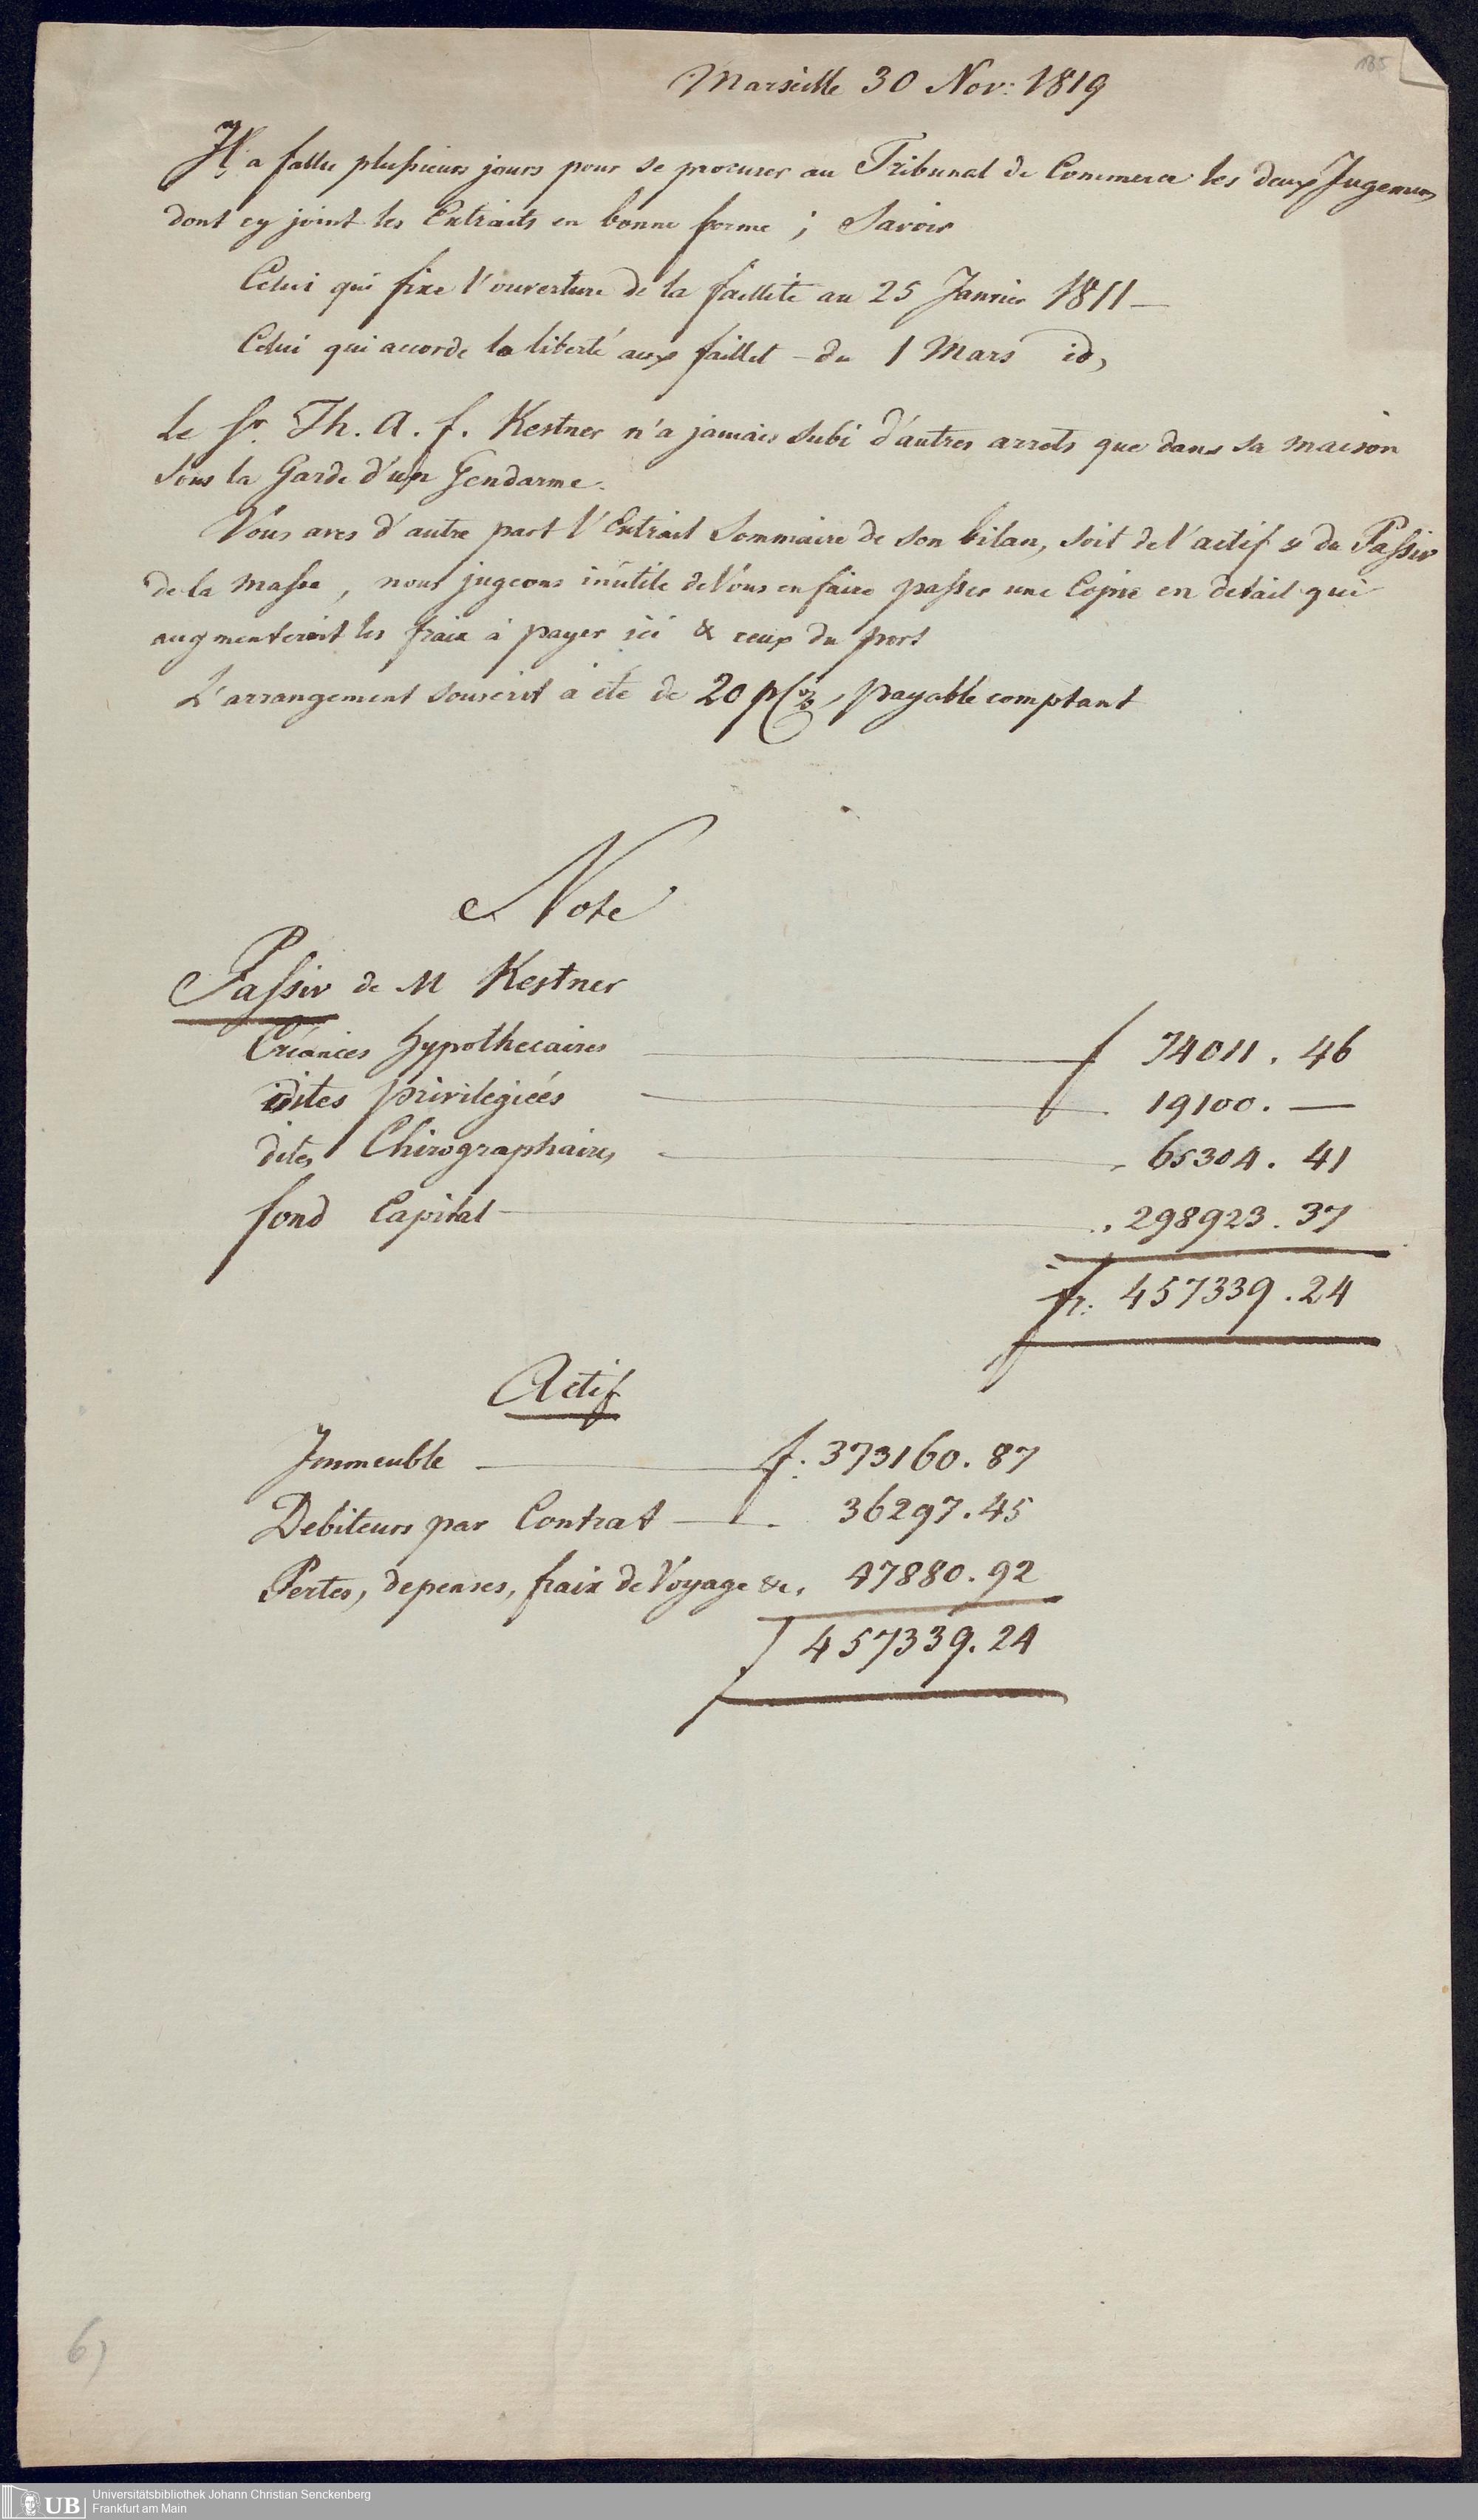 135
Marseille 30 Nov: 1819
Il a fallu plusieurs jours pour se procurer au Tribunal de Commerce les deux Jugemens
dont cy joint les Extraits en bonne forme ; Savoir
Celui qui fixe l'ouverture de la faillite au 25 Janvier 1811 —
Celui qui accorde la liberté aux faillet – du 1 Mars id,
Le Sr. Th. A. f. Kestner n'a jamais subi d'autres arrets que dans sa maison
sous la Garde d'un Gendarme.
Vous aves d'autre part l'Extrait Sommaire de son bilan, soit de l'actif & du Passiv
de la Masse, nous jugeons inutile de Vous en faire passer une Copie en detail qui
augmenteroit les fraix à payer ici & ceux du port
L'arrangement souscrit a été de 20 p%, payable comptant
Note
Passiv de M Kestner
Créances hypothecaires — f 74011. 46
dites privilegiées — 19100. —
dites Chirographaires — 65304. 41
fond Capital — 298923. 37
fr: 457339. 24
Actif
Immeuble — f: 373160. 87
Debiteurs par Contrat — 36297. 45
Pertes, depenses, fraix de Voyage &c, 47880. 92
f 457339. 24
6)
UB Universitätsbibliothek Johann Christian Senckenberg
Frankfurt am Main